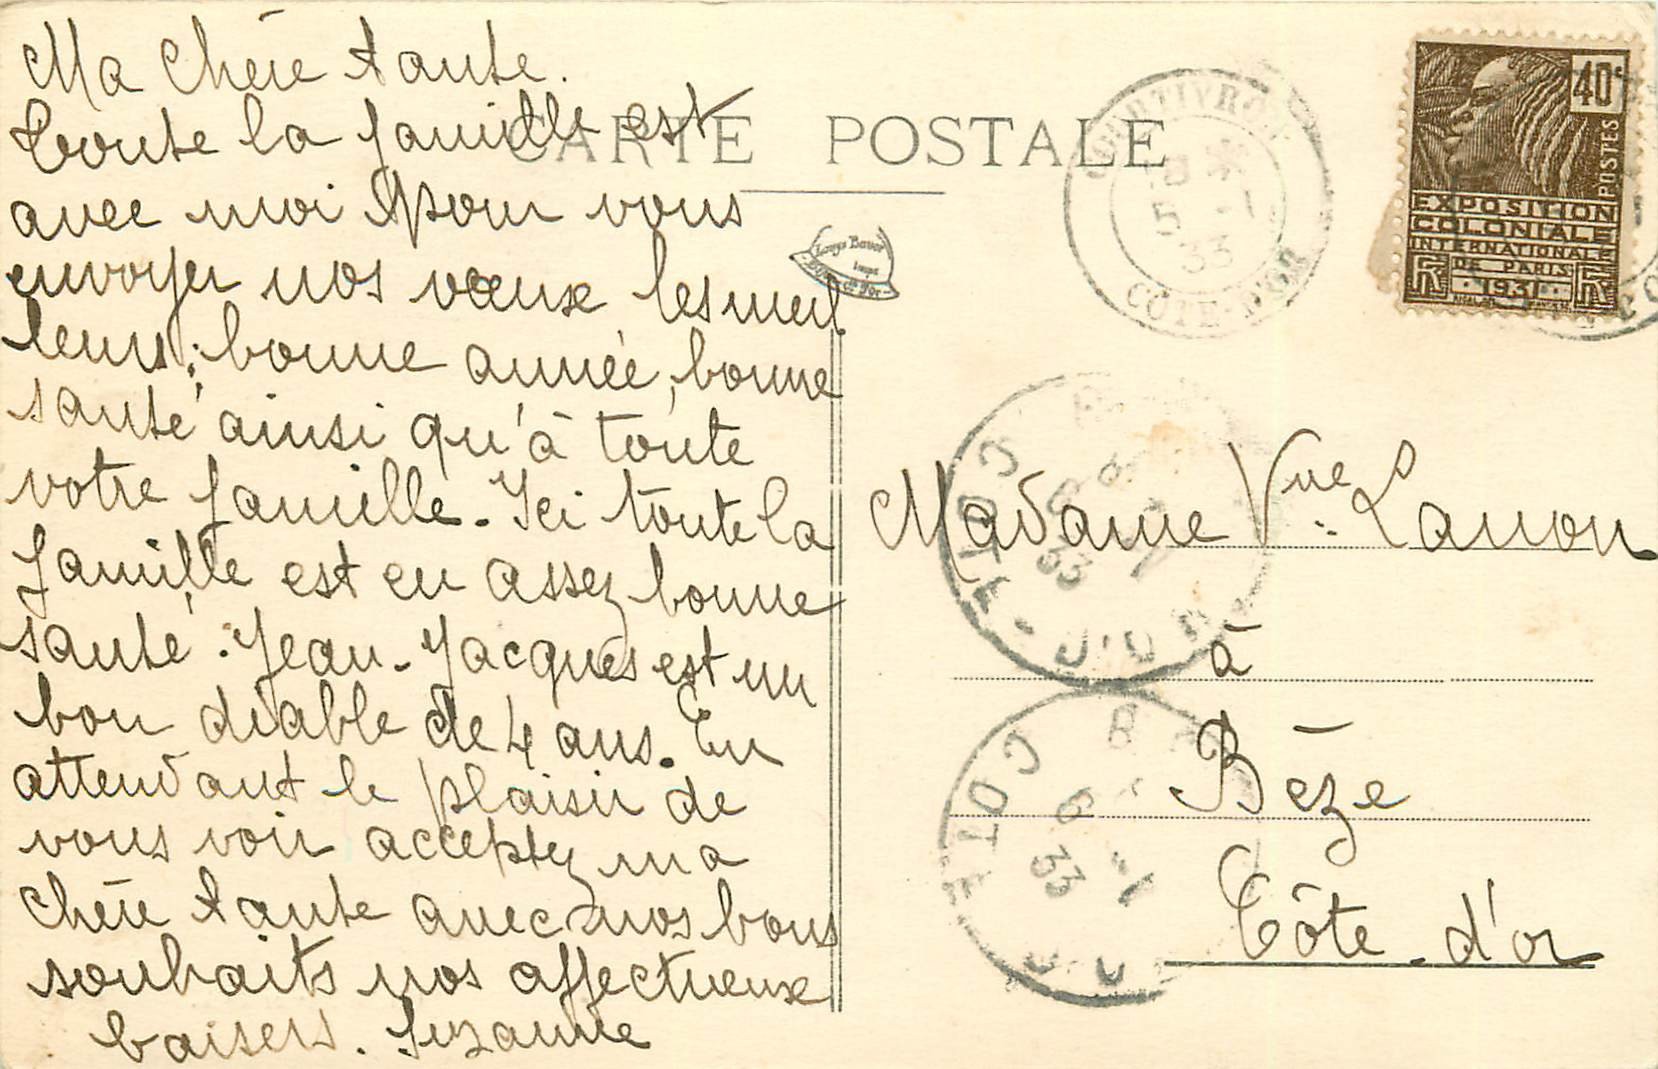 Ma Chère tante.
Toute la famille est
avec moi pour vous
envoyer nos vœux les meil
leurs; bonne année, bonne
santé ainsi qu'à toute
votre famille. Ici toute la
famille est en assez bonne
santé. Jean-Jacques est un
bon diable de 4 ans. En
attendant le plaisir de
vous voir acceptez ma
chère tante avec nos bons
souhaits nos affectueux
baisers. Suzanne
CARTE POSTALE
CÔTE-D'OR
5 -1
33
40c
POSTES
EXPOSITION
COLONIALE
INTERNATIONALE
DE PARIS
1931
Madame Vve Lanon
à
Bèze
Côte-d'or
CÔTE-D'OR
6 -1
33
CÔTE
6 -1
33